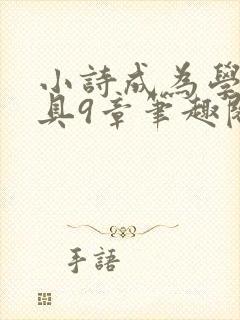 小詩成為學
具9章筆趣閣
手語